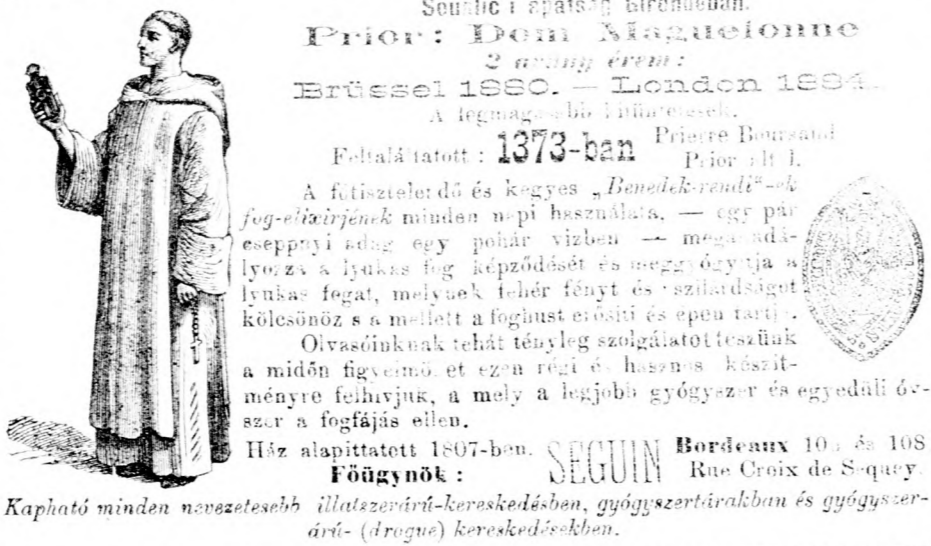 apátság Girondeban.
Prior: Dom Maguelonne
2 arany érem:
Brüssel 1880. — London 1884.
A legmagasabb kitüntetések.
Feltaláltatott: 1373-ban Prierre Boursaud
Prior által.
A főtisztelendő és kegyes „Benedek-rendi“-ek
fog-elixirjének minden napi használata, — egy pár
cseppnyi adag egy pohár vizben — megakadá-
lyozza a lyukas fog képződését és meggyógyitja a
lyukas fogat, melynek fehér fényt és szilárdságot
kölcsönöz s a mellett a foghust erősiti és épen tartja.
Olvasóinknak tehát tényleg szolgálatot teszünk
a midőn figyelmöket ezen régi és hasznos készit-
ményre felhivjuk, a mely a legjobb gyógyszer és egyedüli óv-
szer a fogfájás ellen.
Ház alapittatott 1807-ben.
Főügynök:
SEGUIN
Bordeaux és 108
Rue Croix de Seguey.
Kapható minden nevezetesebb illatszerárú-kereskedésben, gyógyszertárakban és gyógyszer-
árú- (drogue) kereskedésekben.